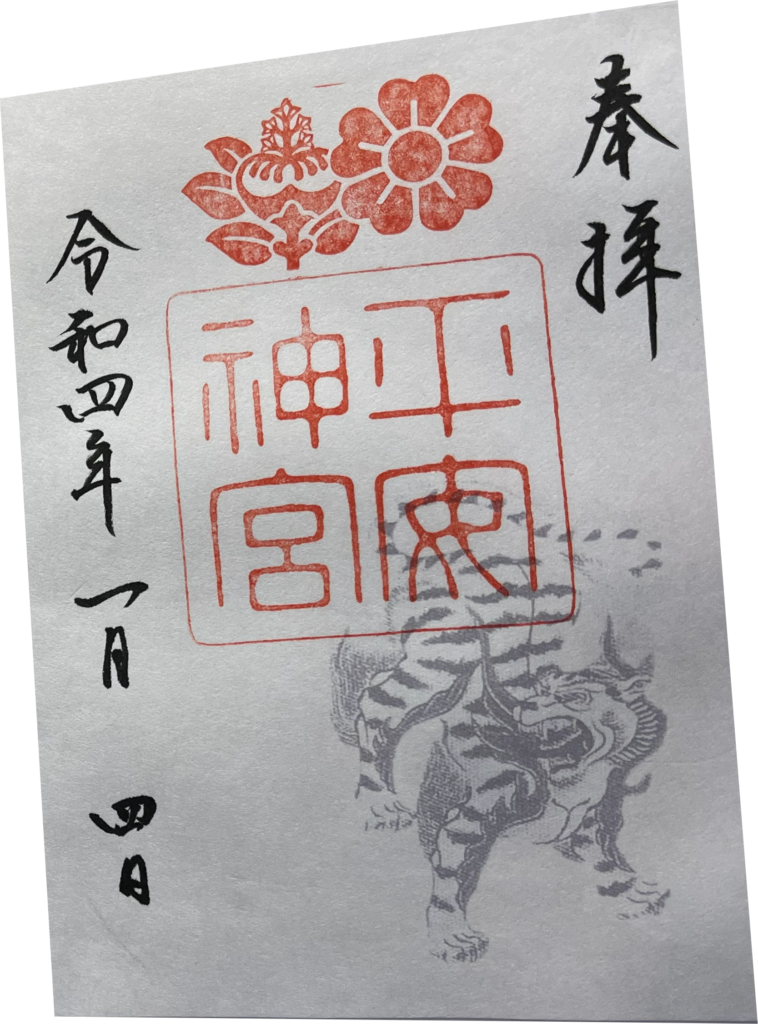 奉拝
平安
神宮
令和四年一月四日